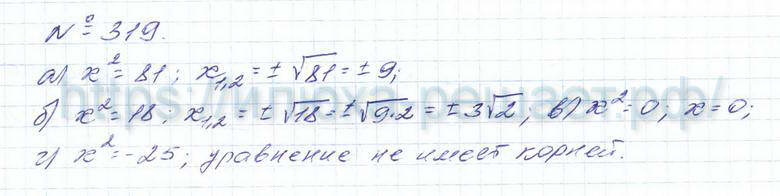 № 319.
а) x² = 81; x₁,₂ = ± √81 = ± 9;
б) x² = 18; x₁,₂ = ± √18 = ± √9·2 = ± 3√2; в) x² = 0; x = 0;
г) x² = -25; уравнение не имеет корней.
https://илюха-репант.рф/